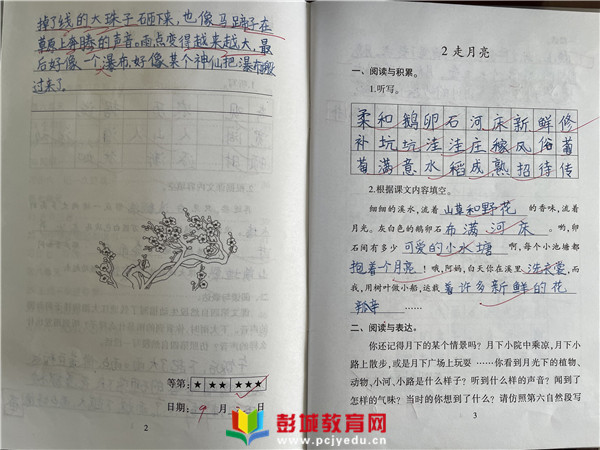 掉了线的大珠子砸下来，也像马蹄子在
草原上奔腾的声音。雨点变得越来越大，最
后好像一个瀑布，好像某个神仙把瀑布
过来了。
等第：★ ★★ ★★★
日期：9 月 日
2
2 走月亮
一、阅读与积累。
1.听写。
柔和鹅卵石河床新鲜修
补坑坑洼洼庄稼风俗葡
萄满意水稻成熟招待传
2.根据课文内容填空。
细细的溪水，流着 山草和野花 的香味，流着
月光。灰白色的鹅卵石 布满河床 。哟，卵
石间有多少 可爱的小水塘 啊，每个小池塘都
抱着个月亮 ！哦，阿妈，白天你在溪里 洗衣裳，而
我，用树叶做小船，运载 着许多新鲜的花
瓣 ……
二、阅读与表达。
你还记得月下的某个情景吗？月下小院中乘凉，月下小
路上散步，或是月下广场上玩耍 ……你看到月光下的植物、
动物、小河、小路是什么样子？听到什么样的声音？闻到了
怎样的气味？当时的你想到了什么？请仿照第六自然段写
3
彭城教育网
www.pcjyedu.cn